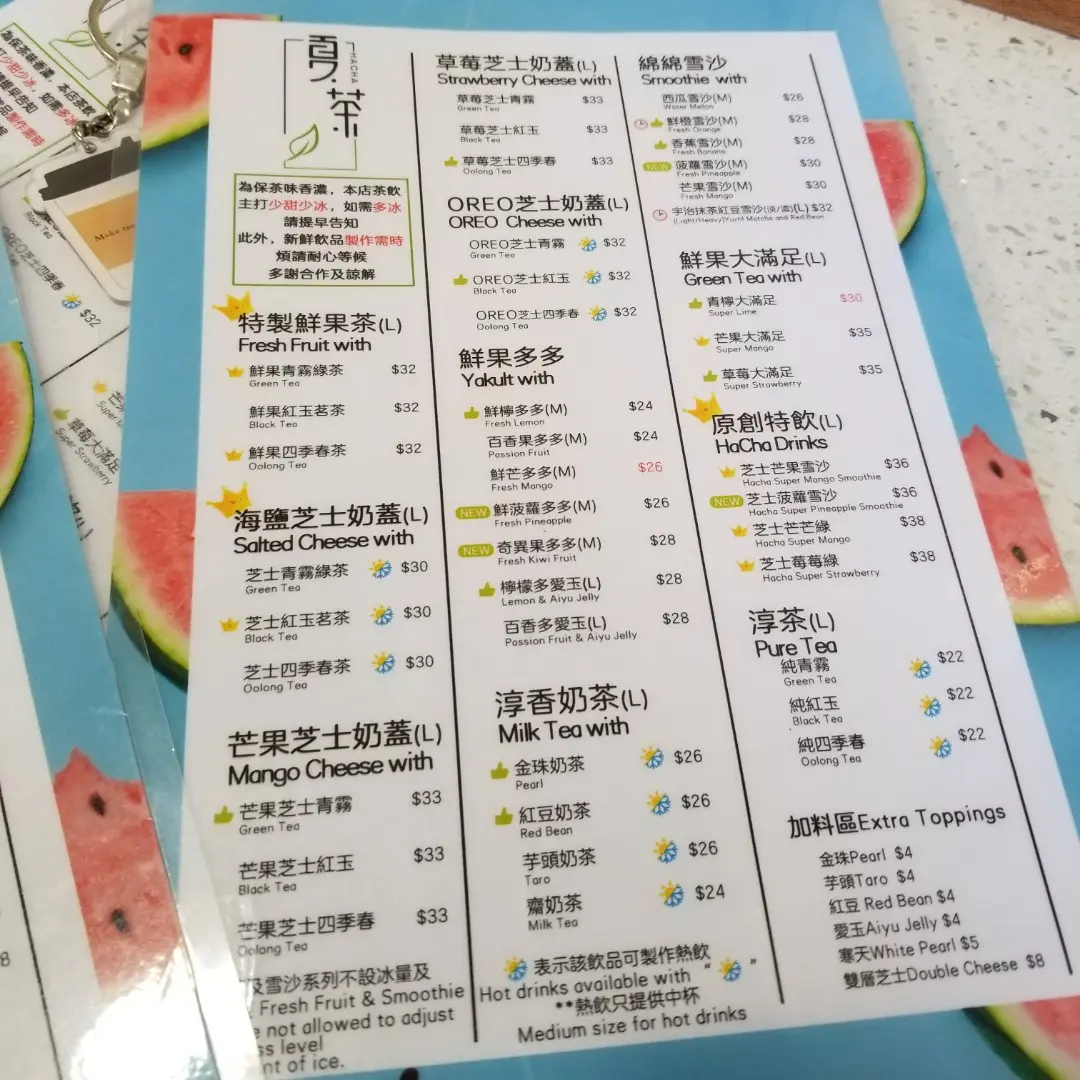 夏茶
HACHA
為保茶味香濃，本店茶飲
主打少甜少冰，如需多冰
請提早告知
此外，新鮮飲品製作需時
煩請耐心等候
多謝合作及諒解
特製鮮果茶(L)
Fresh Fruit with
鮮果青霧綠茶 $32
Green Tea
鮮果紅玉茗茶 $32
Black Tea
鮮果四季春茶 $32
Oolong Tea
海鹽芝士奶蓋(L)
Salted Cheese with
芝士青霧綠茶 $30
Green Tea
芝士紅玉茗茶 $30
Black Tea
芝士四季春茶 $30
Oolong Tea
芒果芝士奶蓋(L)
Mango Cheese with
芒果芝士青霧 $33
Green Tea
芒果芝士紅玉 $33
Black Tea
芒果芝士四季春 $33
Oolong Tea
及雪沙系列不設冰量及
Fresh Fruit & Smoothie
not allowed to adjust
level
of ice.
草莓芝士奶蓋(L)
Strawberry Cheese with
草莓芝士青霧 $33
Green Tea
草莓芝士紅玉 $33
Black Tea
草莓芝士四季春 $33
Oolong Tea
OREO芝士奶蓋(L)
OREO Cheese with
OREO芝士青霧 $32
Green Tea
OREO芝士紅玉 $32
Black Tea
OREO芝士四季春 $32
Oolong Tea
鮮果多多
Yakult with
鮮檸多多(M) $24
Fresh Lemon
百香果多多(M) $24
Passion Fruit
鮮芒多多(M) $26
Fresh Mango
NEW 鮮菠蘿多多(M) $26
Fresh Pineapple
NEW 奇異果多多(M) $28
Fresh Kiwi Fruit
檸檬多愛玉(L) $28
Lemon & Aiyu Jelly
百香多愛玉(L) $28
Passion Fruit & Aiyu Jelly
淳香奶茶(L)
Milk Tea with
金珠奶茶 $26
Pearl
紅豆奶茶 $26
Red Bean
芋頭奶茶 $26
Taro
齋奶茶 $24
Milk Tea
表示該飲品可製作熱飲
Hot drinks available with “ ”
**熱飲只提供中杯
Medium size for hot drinks
綿綿雪沙
Smoothie with
西瓜雪沙(M) $26
Water Melon
鮮橙雪沙(M) $28
Fresh Orange
香蕉雪沙(M) $28
Fresh Banana
NEW 菠蘿雪沙(M) $30
Fresh Pineapple
芒果雪沙(M) $30
Fresh Mango
宇治抹茶紅豆雪沙(淡/濃)(L) $32
(Light/Heavy)Yushi Matcha and Red Bean
鮮果大滿足(L)
Green Tea with
青檸大滿足 $30
Super Lime
芒果大滿足 $35
Super Mango
草莓大滿足 $35
Super Strawberry
原創特飲(L)
HaCha Drinks
芝士芒果雪沙 $36
Hacha Super Mango Smoothie
NEW 芝士菠蘿雪沙 $36
Hacha Super Pineapple Smoothie
芝士芒芒綠 $38
Hacha Super Mango
芝士莓莓綠 $38
Hacha Super Strawberry
淳茶(L)
Pure Tea
純青霧 $22
Green Tea
純紅玉 $22
Black Tea
純四季春 $22
Oolong Tea
加料區Extra Toppings
金珠Pearl $4
芋頭Taro $4
紅豆 Red Bean $4
愛玉Aiyu Jelly $4
寒天White Pearl $5
雙層芝士Double Cheese $8
Black Tea
OREO芝士四季春
$32
Super Strawberry
草莓大滿足